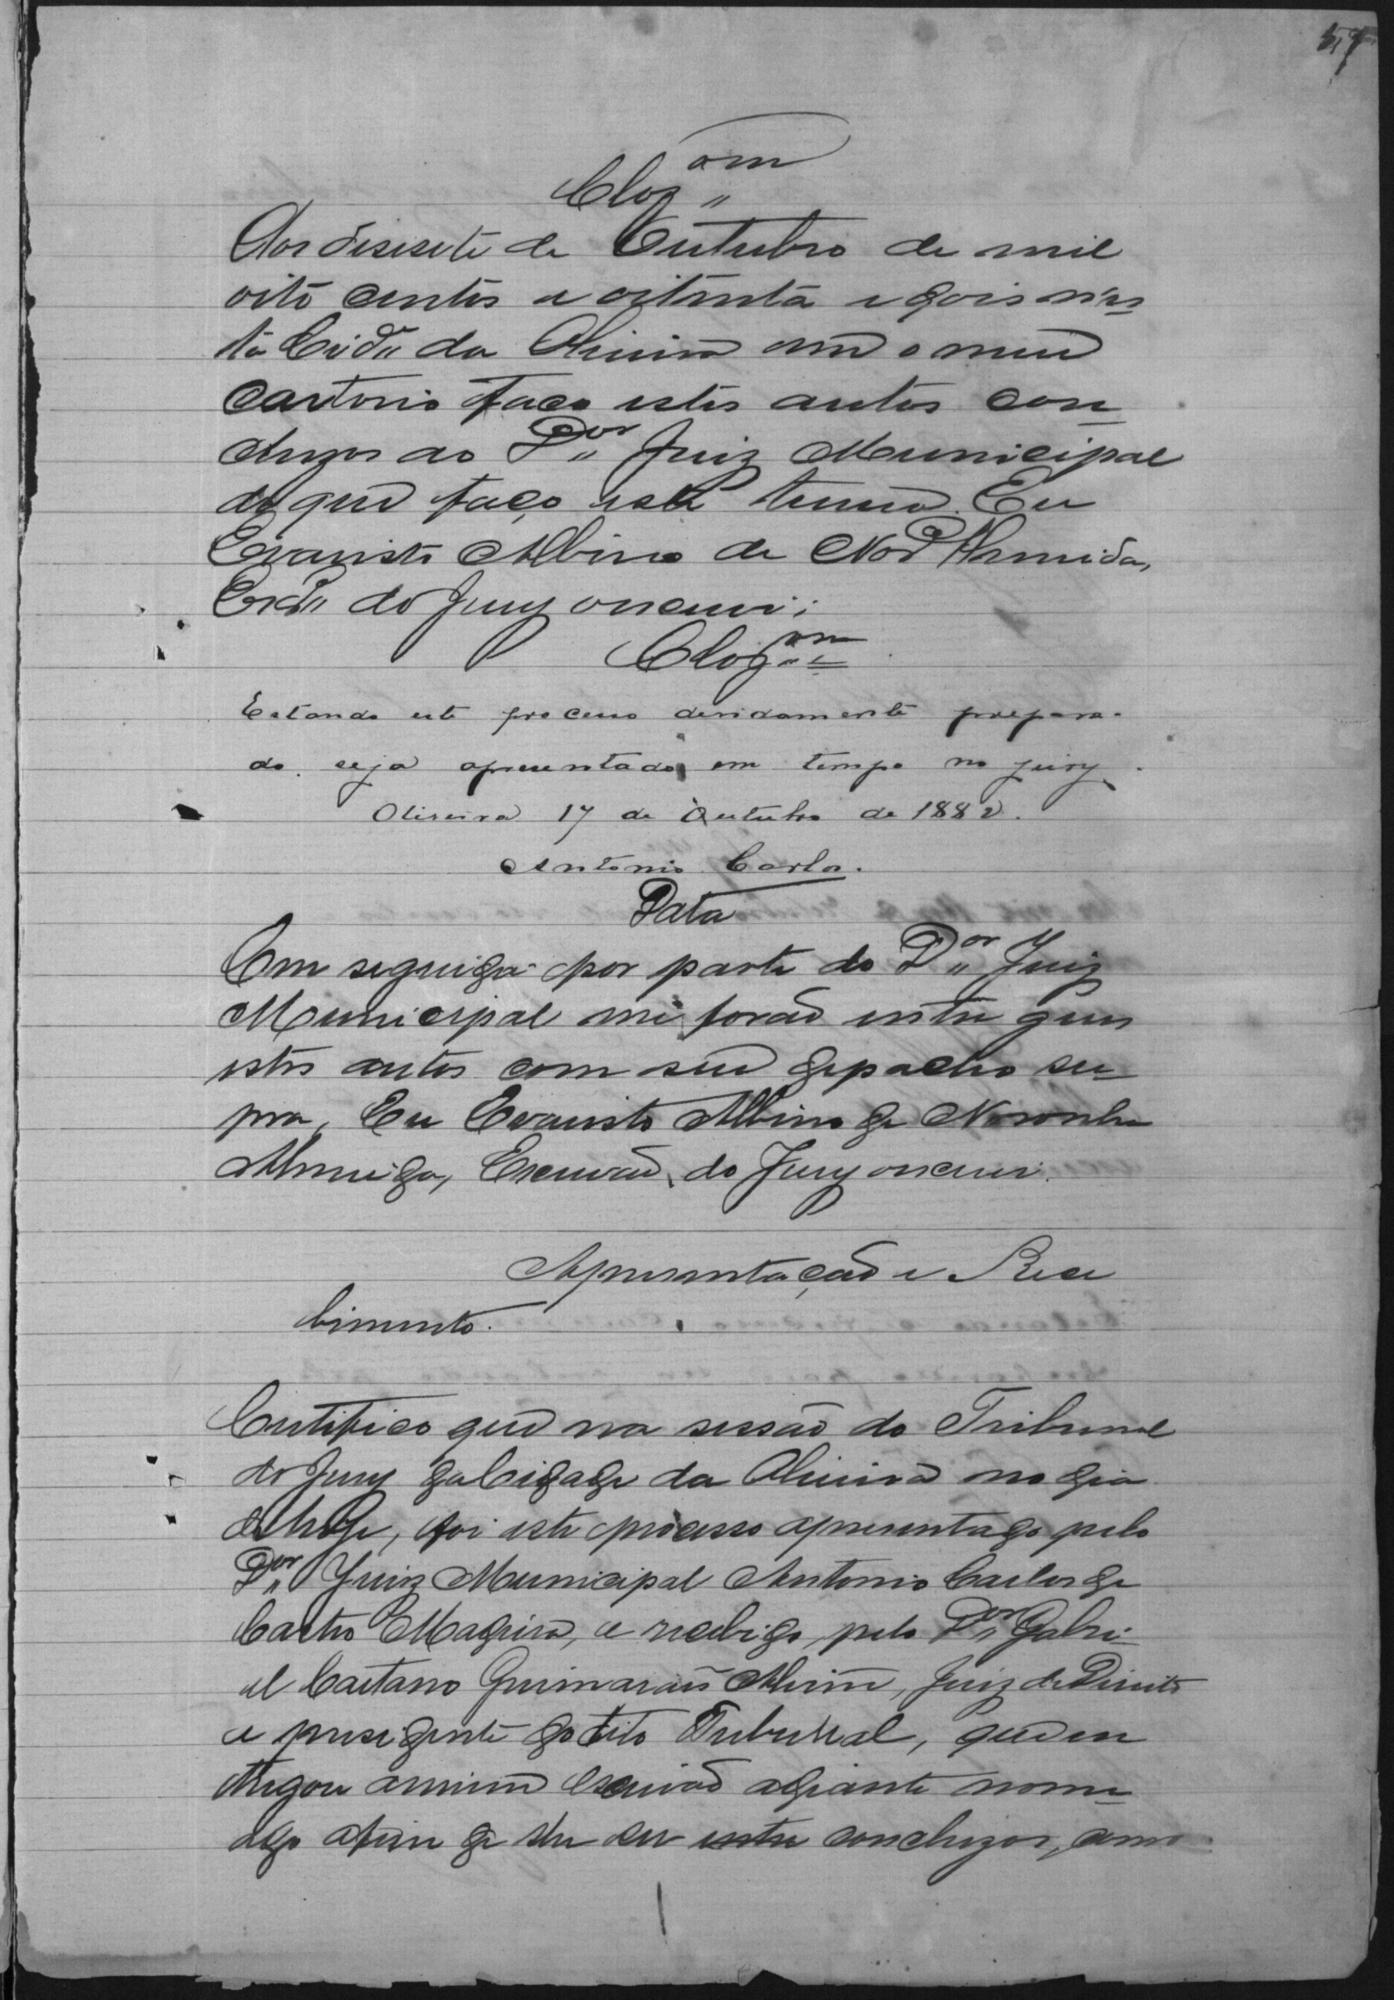 57
Clz.am
Aos desesete de Outubro de mil
oito centos e oitenta e dois nes-
ta Cid.e da Oliveira em o meu
cartorio faço estes autos con-
cluzos ao D.or Juiz Municipal
do que faço este termo. Eu
Evaristo Albino de Nor.a Almeida,
Escr.m do Jury o escrevi;
Clz.am
Estando este processo devidamente prepara-
do seja apresentado em tempo no jury.
Oliveira 17 de Outubro de 1882.
Antonio Carlos.
Data
Em seguida por parte do D.or Juiz
Municipal me forão entregues
estes autos com seu depacho su-
pra, Eu Evaristo Albino de Noronha
Almeida, Escrivão do Jury o escrevi.
Apresentação e Rece
bimento.
Certifico que na sessão do Tribunal
do Jury da Cidade da Oliveira no dia
de hoje, foi este processo apresentado pelo
D.or Juiz Municipal Antonio Carlos de
Castro Madeira, e recebido pelo D.or Gabri-
el Caetano Guimarães Alvim, Juiz de Direito
e presidente do dito Tribunal, que en
tregou a mim Escrivão adiante nome-
ado afim de lhe ser concluzos, como